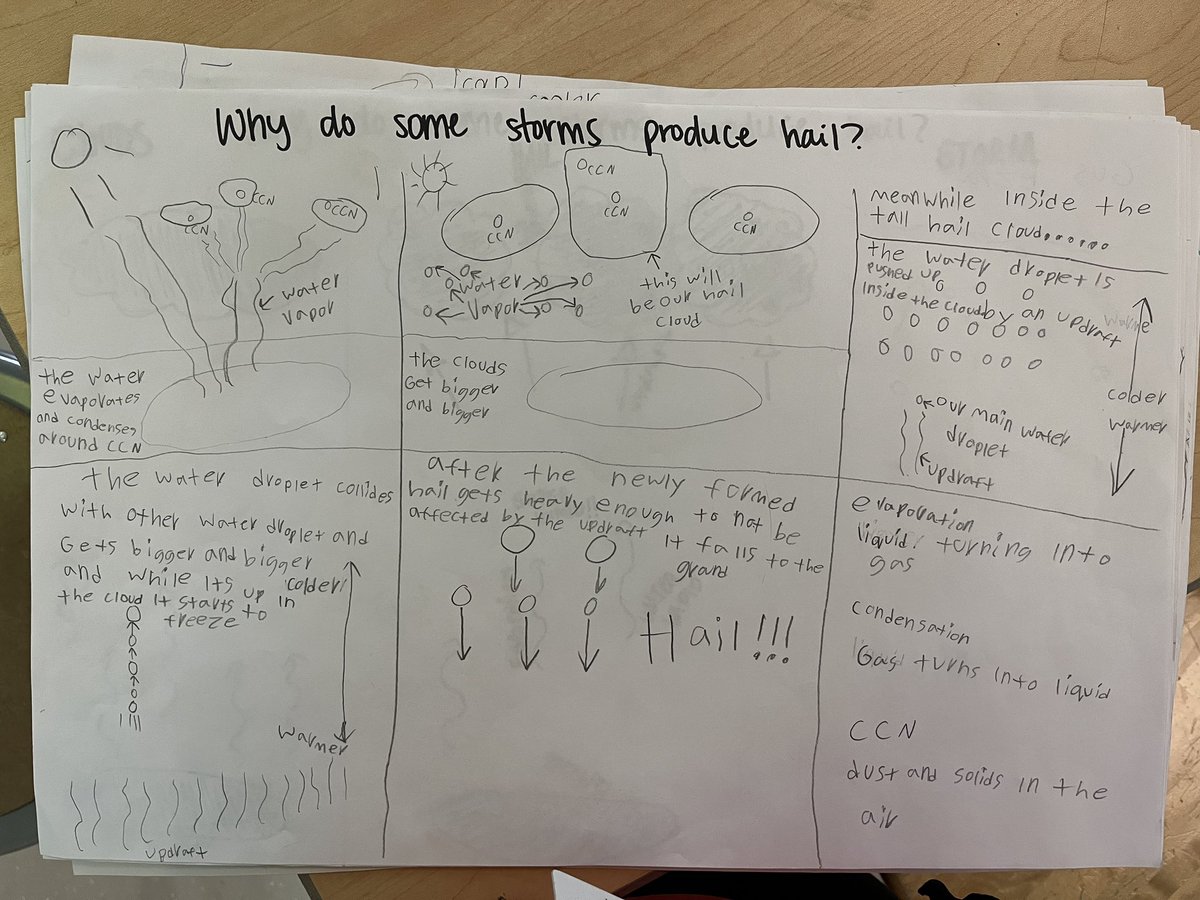 Why do some storms produce hail?
CCN
CCN
CCN
water
vapor
the water
evaporates
and condenses
around CCN
CCN
CCN
CCN
CCN
water
vapor
this will
be our hail
cloud
the clouds
Get bigger
and bigger
meanwhile inside the
tall hail cloud.......
the water droplet is
pushed up
inside the cloud by an updraft
colder
warmer
our main water
droplet
updraft
the water droplet collides
with other water droplet and
Gets bigger and bigger
and while its up in
the cloud it starts to
freeze
colder
warmer
updraft
after the newly formed
hail gets heavy enough to not be
affected by the updraft it falls to the
grand
Hail!!!
evaporation
liquid turning into
gas
condensation
Gas turns into liquid
CCN
dust and solids in the
air